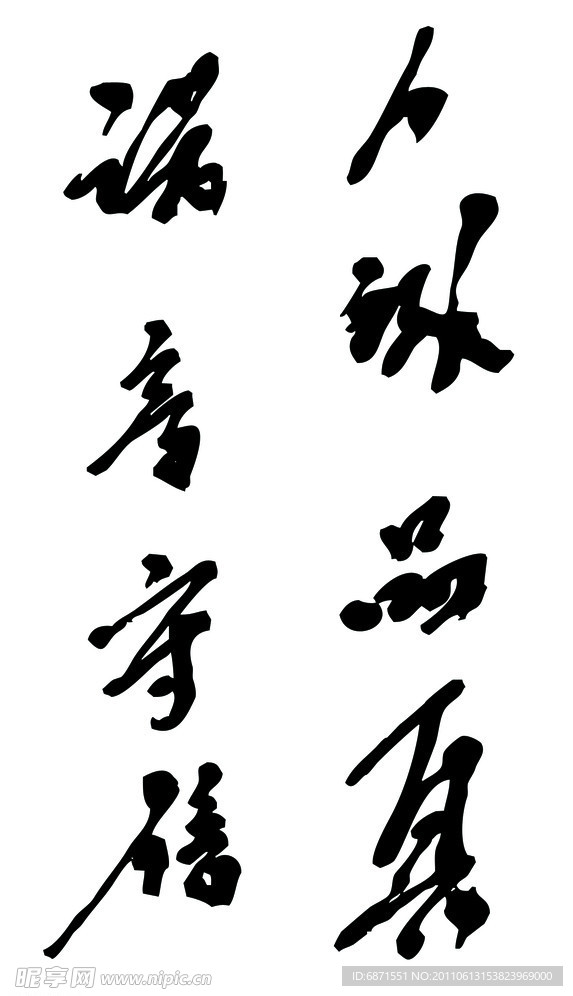 人 品真
诺言守信
昵享网 www.nipic.cn
ID:6871551 NO:20110613153823969000